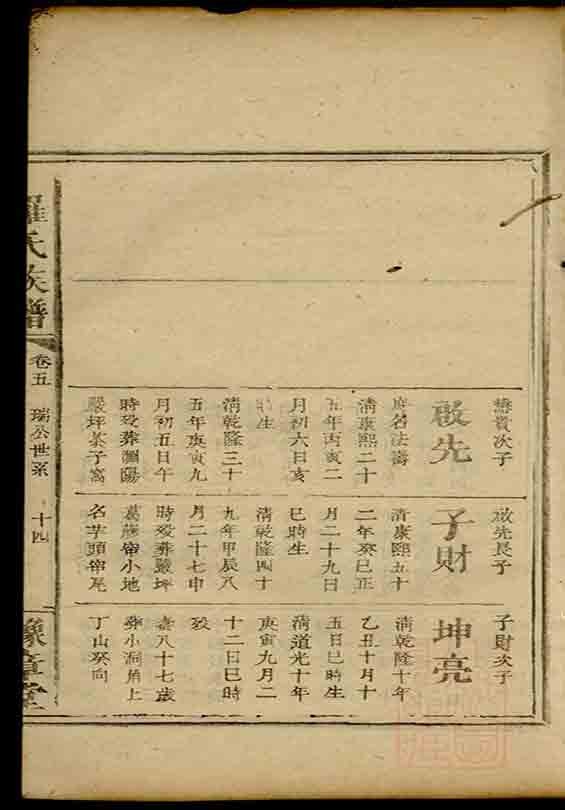 懋賞次子
啟先
庠名法壽
清康熙二十
五年丙寅二
月初六日亥
時生
清乾隆三十
五年庚寅九
月初五日午
時殁葬瀾陽
嚴坪茶子窩
啟先長子
子財
清康熙五十
二年癸巳正
月二十九日
巳時生
清乾隆四十
九年甲辰八
月二十七申
時殁葬嚴坪
葛藤帘小地
名芋頭帘凥
子財次子
坤亮
清乾隆十年
乙丑十月十
五日巳時生
清道光十年
庚寅九月二
十二日巳時
殁
壽八十七歲
葬小洞角上
丁山癸向
羅氏族譜
卷五
瑞公世系
十四
豫章堂